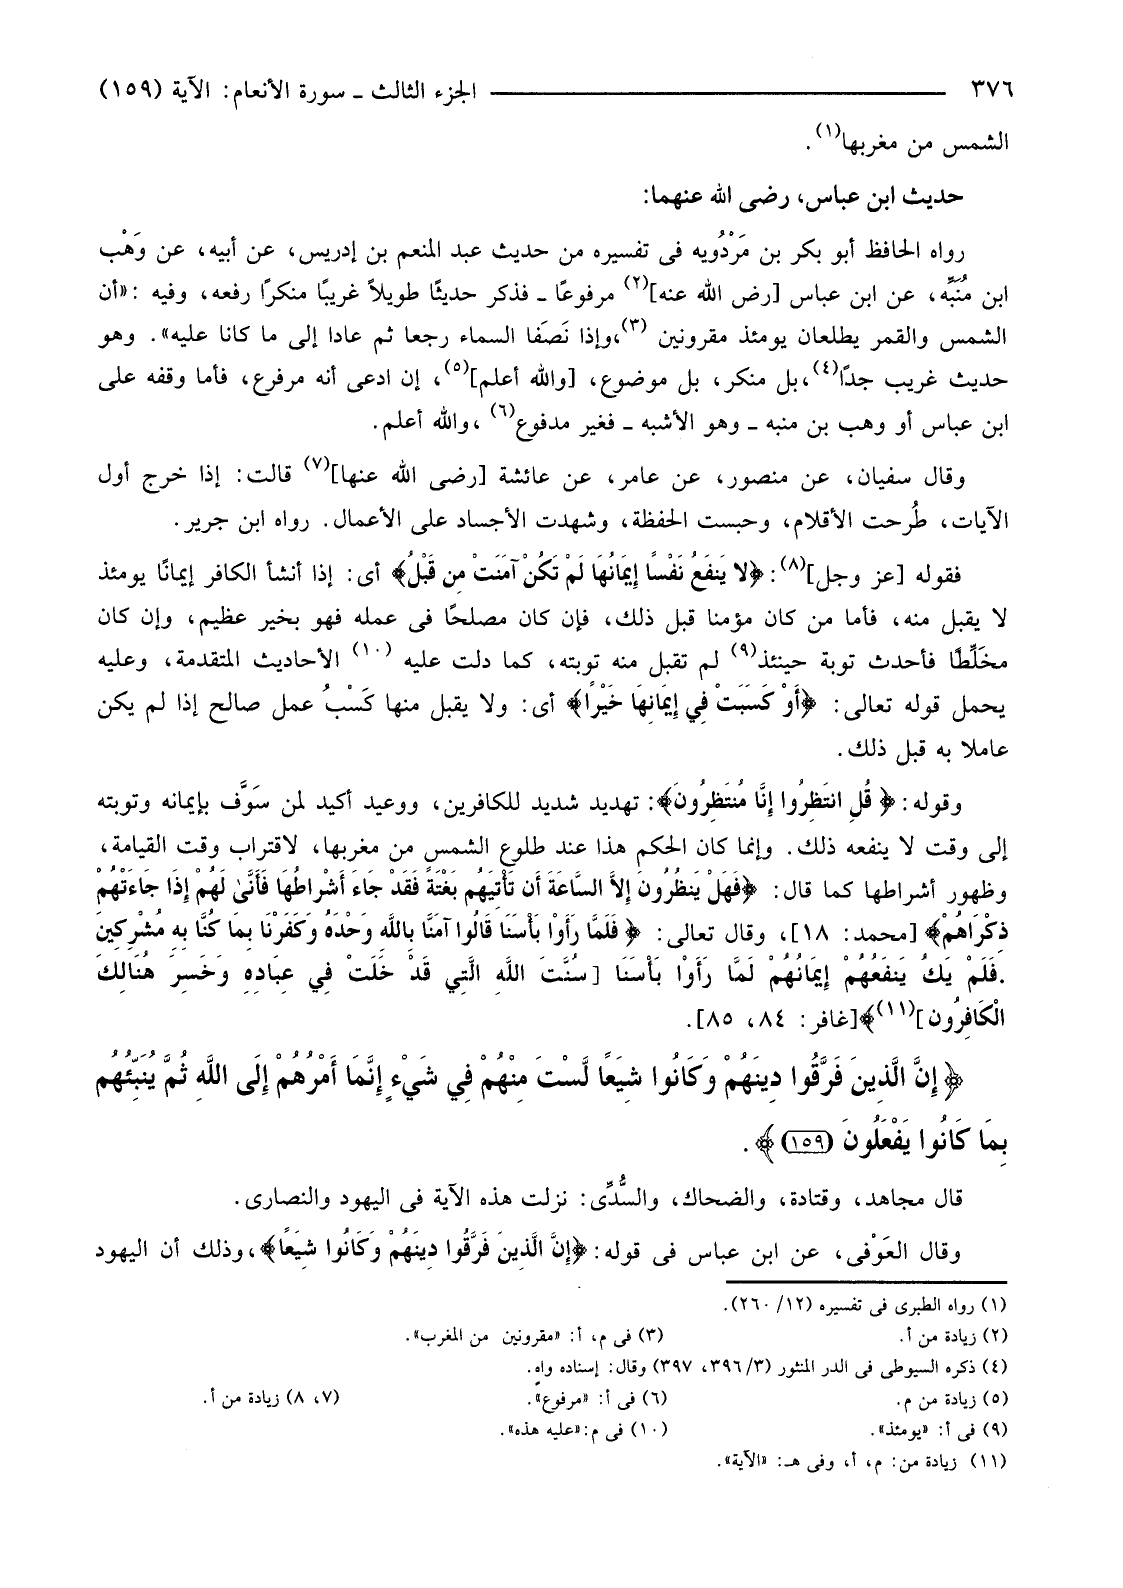 ٣٧٦ ــــــــــــ الجزء الثالث ـ سورة الأنعام: الآية (١٥٩)
الشمس من مغربها(١).
حديث ابن عباس، رضى الله عنهما:
رواه الحافظ أبو بكر بن مَرْدُويه فى تفسيره من حديث عبد المنعم بن إدريس، عن أبيه، عن وَهْب
ابن مُنَبِّه، عن ابن عباس [رض الله عنه](٢) مرفوعًا ـ فذكر حديثًا طويلاً غريبًا منكرًا رفعه، وفيه :«أن
الشمس والقمر يطلعان يومئذ مقرونين (٣)،وإذا نَصَفَا السماء رجعا ثم عادا إلى ما كانا عليه». وهو
حديث غريب جدًا(٤)،بل منكر، بل موضوع، [والله أعلم](٥)، إن ادعى أنه مرفرع، فأما وقفه على
ابن عباس أو وهب بن منبه ـ وهو الأشبه ـ فغير مدفوع(٦) ،والله أعلم.
وقال سفيان، عن منصور، عن عامر، عن عائشة [رضى الله عنها](٧) قالت: إذا خرج أول
الآيات، طُرحت الأقلام، وحبست الحفظة، وشهدت الأجساد على الأعمال. رواه ابن جرير.
فقوله [عز وجل](٨): ﴿لا يَنفَعُ نَفْسًا إِيمَانُهَا لَمْ تَكُنْ آمَنَتْ مِن قَبْلُ﴾ أى: إذا أنشأ الكافر إيمانًا يومئذ
لا يقبل منه، فأما من كان مؤمنا قبل ذلك، فإن كان مصلحًا فى عمله فهو بخير عظيم، وإن كان
مخَلِّطًا فأحدث توبة حينئذ(٩) لم تقبل منه توبته، كما دلت عليه (١٠) الأحاديث المتقدمة، وعليه
يحمل قوله تعالى: ﴿أَوْ كَسَبَتْ فِي إِيمَانِهَا خَيْرًا﴾ أى: ولا يقبل منها كَسْبُ عمل صالح إذا لم يكن
عاملا به قبل ذلك.
وقوله: ﴿ قُلِ انتَظِرُوا إِنَّا مُنتَظِرُونَ﴾: تهديد شديد للكافرين، ووعيد أكيد لمن سَوَّف بإيمانه وتوبته
إلى وقت لا ينفعه ذلك. وإنما كان الحكم هذا عند طلوع الشمس من مغربها، لاقتراب وقت القيامة،
وظهور أشراطها كما قال: ﴿فَهَلْ يَنظُرُونَ إِلاَّ السَّاعَةَ أَن تَأْتِيَهُم بَغْتَةً فَقَدْ جَاءَ أَشْرَاطُهَا فَأَنَّىٰ لَهُمْ إِذَا جَاءَتْهُمْ
ذِكْرَاهُمْ﴾ [محمد: ١٨]، وقال تعالى: ﴿ فَلَمَّا رَأَوْا بَأْسَنَا قَالُوا آمَنَّا بِاللَّهِ وَحْدَهُ وَكَفَرْنَا بِمَا كُنَّا بِهِ مُشْرِكِينَ
.فَلَمْ يَكُ يَنفَعُهُمْ إِيمَانُهُمْ لَمَّا رَأَوْا بَأْسَنَا [سُنَّتَ اللَّهِ الَّتِي قَدْ خَلَتْ فِي عِبَادِهِ وَخَسِرَ هُنَالِكَ
الْكَافِرُونَ](١١)﴾[غافر: ٨٤، ٨٥].
﴿ إِنَّ الَّذِينَ فَرَّقُوا دِينَهُمْ وَكَانُوا شِيَعًا لَّسْتَ مِنْهُمْ فِي شَيْءٍ إِنَّمَا أَمْرُهُمْ إِلَى اللَّهِ ثُمَّ يُنَبِّئُهُم
بِمَا كَانُوا يَفْعَلُونَ (١٥٩) ﴾.
قال مجاهد، وقتادة، والضحاك، والسُّدِّى: نزلت هذه الآية فى اليهود والنصارى.
وقال العَوْفى، عن ابن عباس فى قوله: ﴿إِنَّ الَّذِينَ فَرَّقُوا دِينَهُمْ وَكَانُوا شِيَعًا﴾،وذلك أن اليهود
(١) رواه الطبرى فى تفسيره (١٢/ ٢٦٠).
(٢) زيادة من أ. (٣) فى م، أ: «مقرونين من المغرب».
(٤) ذكره السيوطى فى الدر المنثور (٣/ ٣٩٦، ٣٩٧) وقال: إسناده واهٍ.
(٥) زيادة من م. (٦) فى أ: «مرفوع». (٧، ٨) زيادة من أ.
(٩) فى أ: «يومئذ». (١٠) فى م:«عليه هذه».
(١١) زيادة من: م، أ، وفى هـ: «الآية».